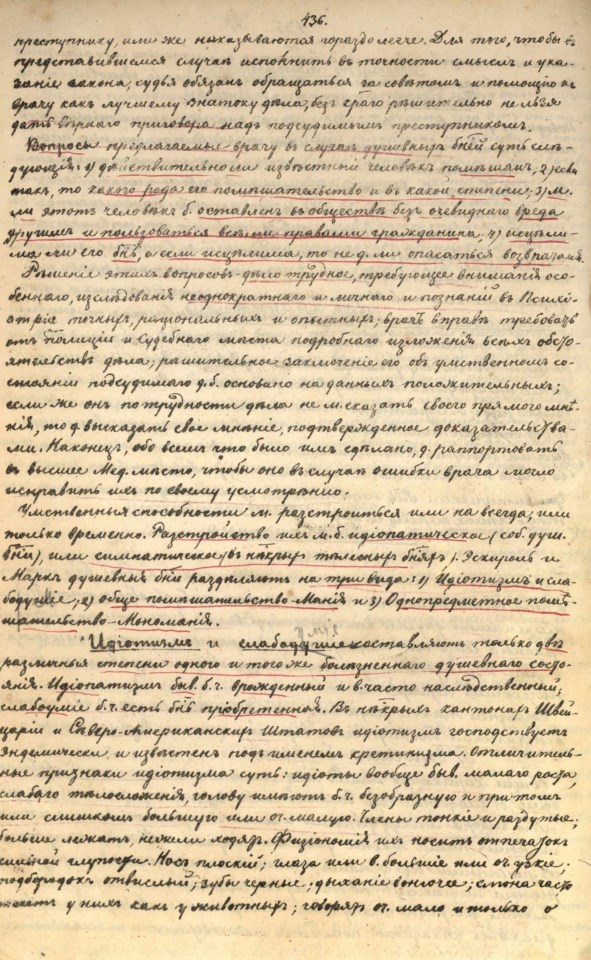 436.
преступнику, или же наказываются гораздо легче. Для того, чтобы въ
представившемся случаѣ исполнить въ точности смыслъ и ука-
заніе закона, судья обязанъ обращаться за совѣтомъ и помощію къ
врачу какъ лучшему знатоку дѣла, безъ краго рѣшительно нельзя
дать вѣрнаго приговора надъ подсудимымъ преступникомъ.
Вопросы предлагаемые врачу въ случаѣ душевныхъ бней суть слѣ-
дующія: 1) дѣйствительно ли извѣстный человѣкъ помѣшанъ, 2) если
такъ, то какого рода его помѣшательство и въ какой степени, 3) м.
ли этотъ человѣкъ б. оставленъ въ обществѣ безъ очевиднаго вреда
другимъ и пользоваться всѣми правами гражданина, 4) исцѣли-
ма ли его бнь, а если исцѣлима, то не д. ли опасаться возврата ея.
Рѣшеніе этихъ вопросовъ дѣло трудное, требующее вниманія осо-
беннаго, изслѣдованія неоднократнаго и личнаго и познаній въ Психі-
атріе точныхъ, раціональныхъ и опытныхъ; врачъ вправѣ требовать
отъ Полиціи и Судебнаго мѣста подробнаго изложенія всѣхъ обсто-
ятельствъ дѣла; рѣшительное заключеніе его объ умственномъ со-
стояніи подсудимаго д. б. основано на данныхъ положительныхъ;
если же онъ по трудности дѣла не м. сказать своего прямого мнѣ-
нія, то д. высказать свое мнѣніе, подтвержденное доказательства-
ми. Наконецъ, обо всемъ что было имъ сдѣлано, д. раппортовать
въ высшее Мед. мѣсто, чтобы оно въ случаѣ ошибки врача могло
исправить ихъ по своему усмотрѣнію.
Умственныя способности м. разстроиться или на всегда, или
только временно. Разстройство ихъ м. б. идіопатическое (соб. душ.
бни), или симпатическое (въ нѣкрыхъ тѣлесныхъ бняхъ). Эскироль и
Маркъ душевныя бни раздѣляютъ на три вида: 1) Идіотизмъ и сла-
бодушіе, 2) общее помѣшательство-Манія и 3) Однопредметное помѣ-
шательство-Мономанія.
Идіотизмъ и слабодушіе составляютъ только двѣ
различныя степени одного и того же болѣзненнаго душевнаго состо-
янія. Идіопатизмъ быв. б. ч. врожденный и в. часто наслѣдственный;
слабоуміе б. ч. есть бнь пріобрѣтенная. Въ нѣкрыхъ кантонахъ Швей-
царіи и Сѣверо-Американскихъ Штатовъ идіотизмъ господствуетъ
эндемически и извѣстенъ подъ именемъ кретинизма. Отличитель-
ные признаки идіотизма суть: идіоты вообще быв. малаго роста,
слабаго тѣлосложенія, голову имѣютъ б. ч. безобразную и притомъ
или слишкомъ большую или оч. малую. Члены тонкіе и раздутые;
больше лежатъ, нежели ходятъ. Физіономія ихъ носитъ отпечатокъ
глупости. Носъ плоскій; глаза или в. большіе или оч. узкіе;
подбородокъ отвислый; зубы черные; дыханіе вонючее; слюна часто
течетъ у нихъ какъ у животныхъ; говорятъ оч. мало и только о